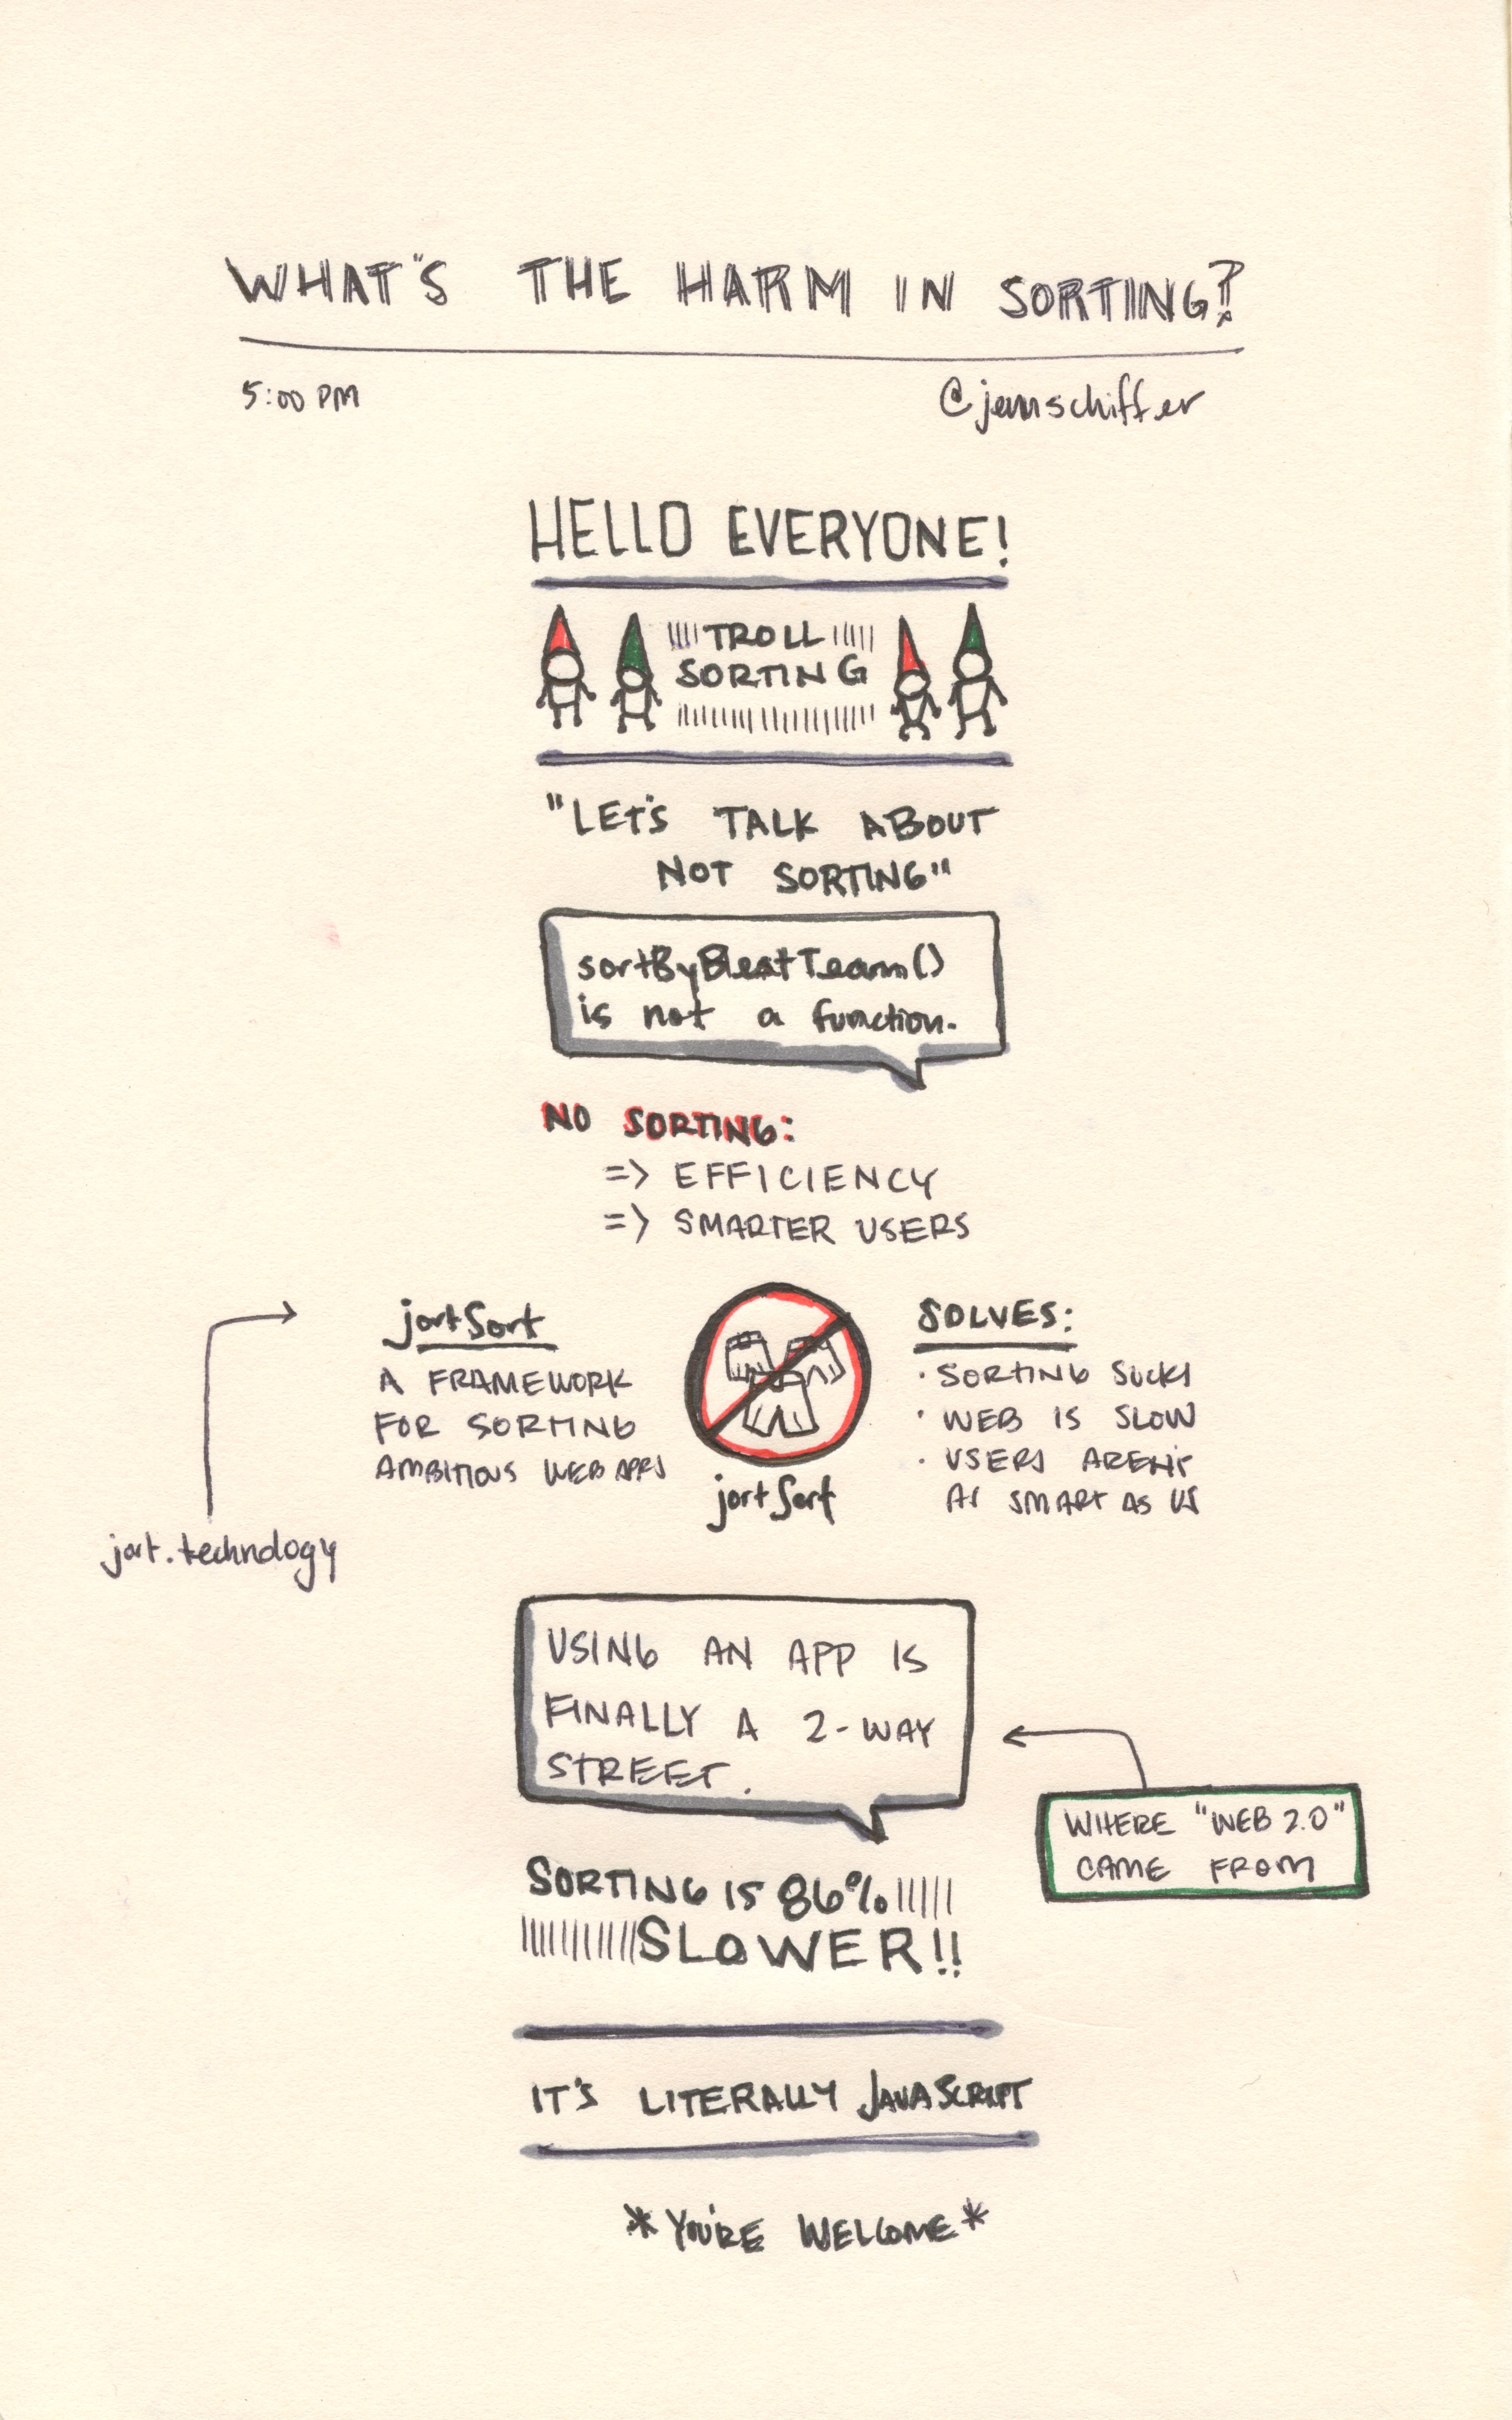 WHAT'S THE HARM IN SORTING?
5:00 PM
@jennschiffer
HELLO EVERYONE!
TROLL
SORTING
"LET'S TALK ABOUT
NOT SORTING"
sortByBestTeam()
is not a function.
NO SORTING:
=> EFFICIENCY
=> SMARTER USERS
jortSort
A FRAMEWORK
FOR SORTING
AMBITIOUS WEB APPS
jort.technology
jortSort
SOLVES:
· SORTING SUCKS
· WEB IS SLOW
· USERS AREN'T
AS SMART AS US
USING AN APP IS
FINALLY A 2-WAY
STREET.
WHERE "WEB 2.0"
CAME FROM
SORTING IS 86%
SLOWER!!
IT'S LITERALLY JAVASCRIPT
*YOU'RE WELCOME*